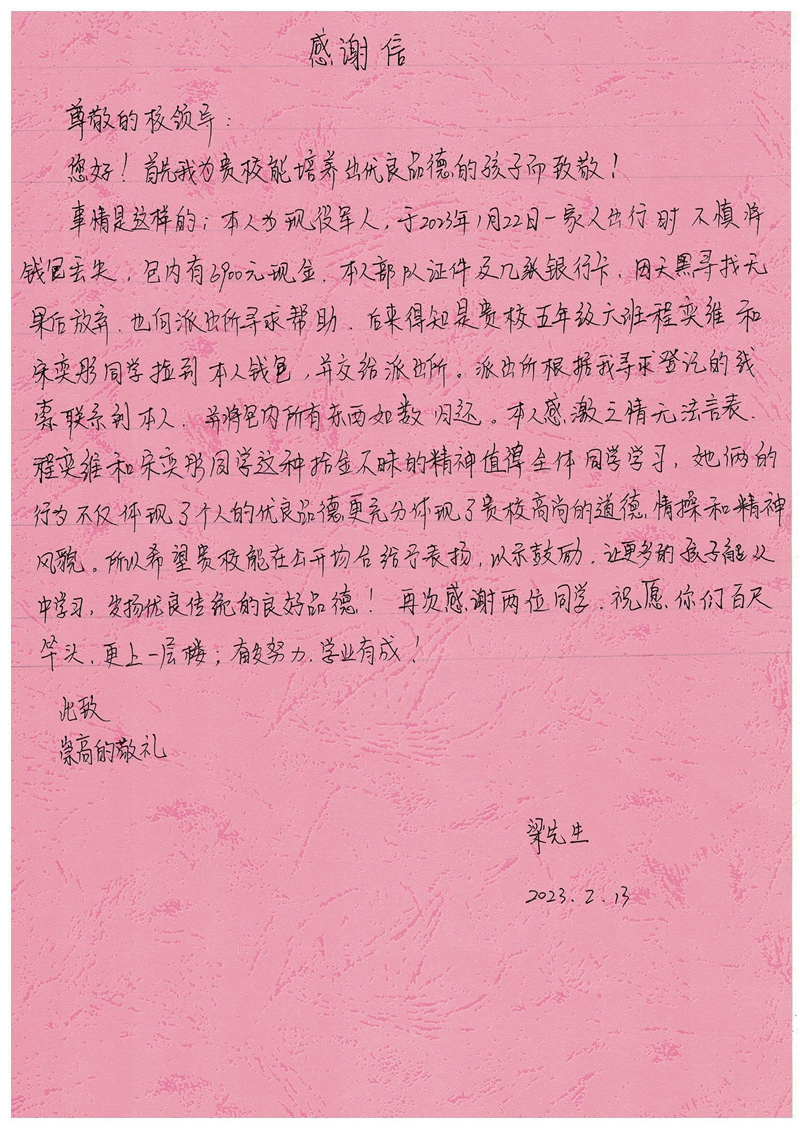 感谢信
尊敬的校领导：
您好！首先我为贵校能培养出优良品德的孩子而致敬！
事情是这样的：本人为现役军人，于2023年1月22日一家人出行时不慎将
钱包丢失，包内有6900元现金、本人部队证件及几张银行卡，因天黑寻找无
果后放弃，也向派出所寻求帮助，后来得知是贵校五年级六班程奕维和
宋奕彤同学捡到本人钱包，并交给派出所。派出所根据我寻求登记的线
索联系到本人，并将包内所有东西如数归还。本人感激之情无法言表，
程奕维和宋奕彤同学这种拾金不昧的精神值得全体同学学习，她俩的
行为不仅体现了个人的优良品德更充分体现了贵校高尚的道德情操和精神
风貌。所以希望贵校能在公开场合给予表扬，以示鼓励，让更多的孩子能从
中学习，发扬优良传统的良好品德！再次感谢两位同学，祝愿你们百尺
竿头，更上一层楼；有多努力，学业有成！
此致
崇高的敬礼
梁先生
2023.2.13